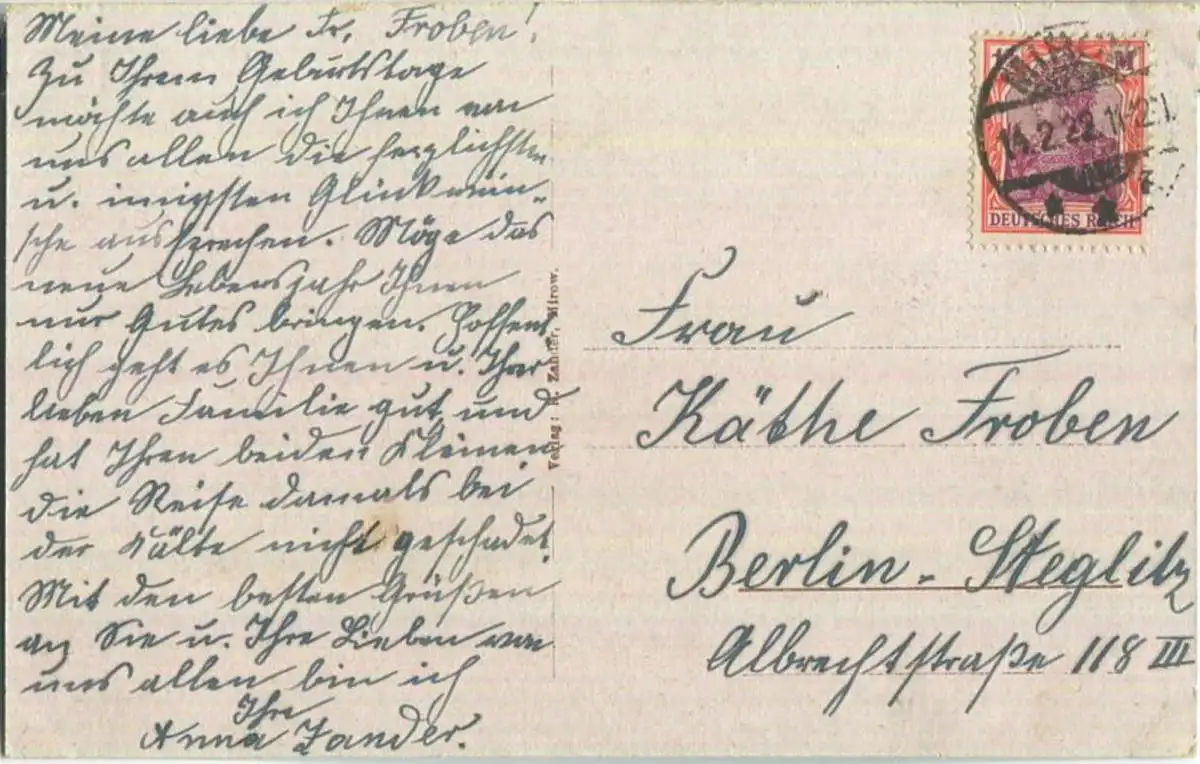 Meine liebe Fr. Froben!
Zu Ihrem Geburtstage
möchte auch ich Ihnen von
uns allen die herzlichsten
u. innigsten Glückwün-
sche aussprechen. Möge das
neue Lebensjahr Ihnen
nur Gutes bringen. Hoffent
lich geht es Ihnen u. Ihrer
lieben Familie gut und
hat Ihren beiden Kleinen
die Reise damals bei
der Kälte nicht geschadet.
Mit den besten Grüßen
an Sie u. Ihre Lieben von
uns allen bin ich
Ihre
Anna Zander.
Verlag: R. Zander, Mirow.
M
14.2.22.
DEUTSCHES REICH
Frau
Käthe Froben
Berlin-Steglitz
Albrechtstraße 118 III